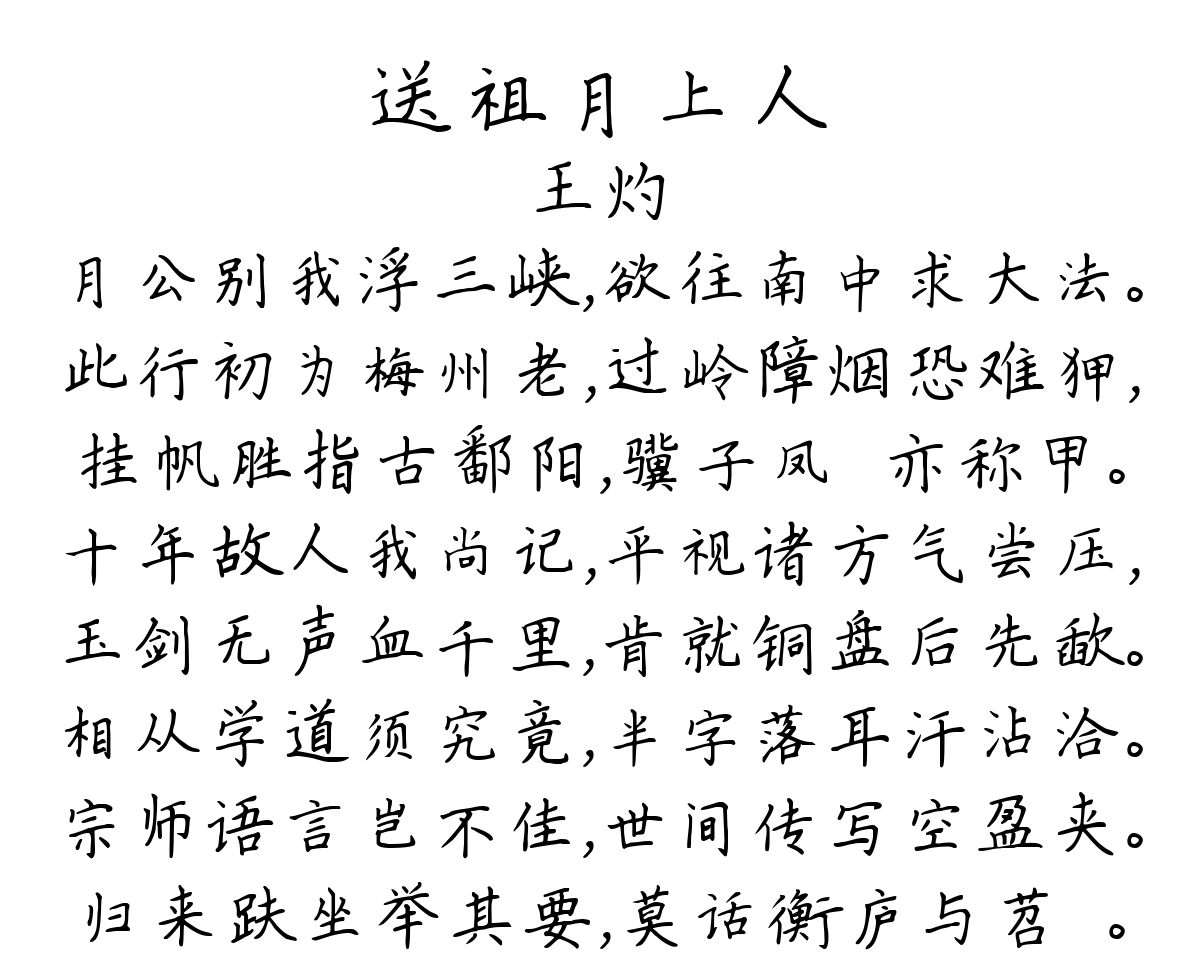 送祖月上人
王灼
月公别我浮三峡,欲往南中求大法。
此行初为梅州老,过岭障烟恐难狎,
挂帆胜指古鄱阳,骥子凤 亦称甲。
十年故人我尚记,平视诸方气尝压,
玉剑无声血千里,肯就铜盘后先歃。
相从学道须究竟,半字落耳汗沾洽。
宗师语言岂不佳,世间传写空盈夹。
归来趺坐举其要,莫话衡庐与苕 。